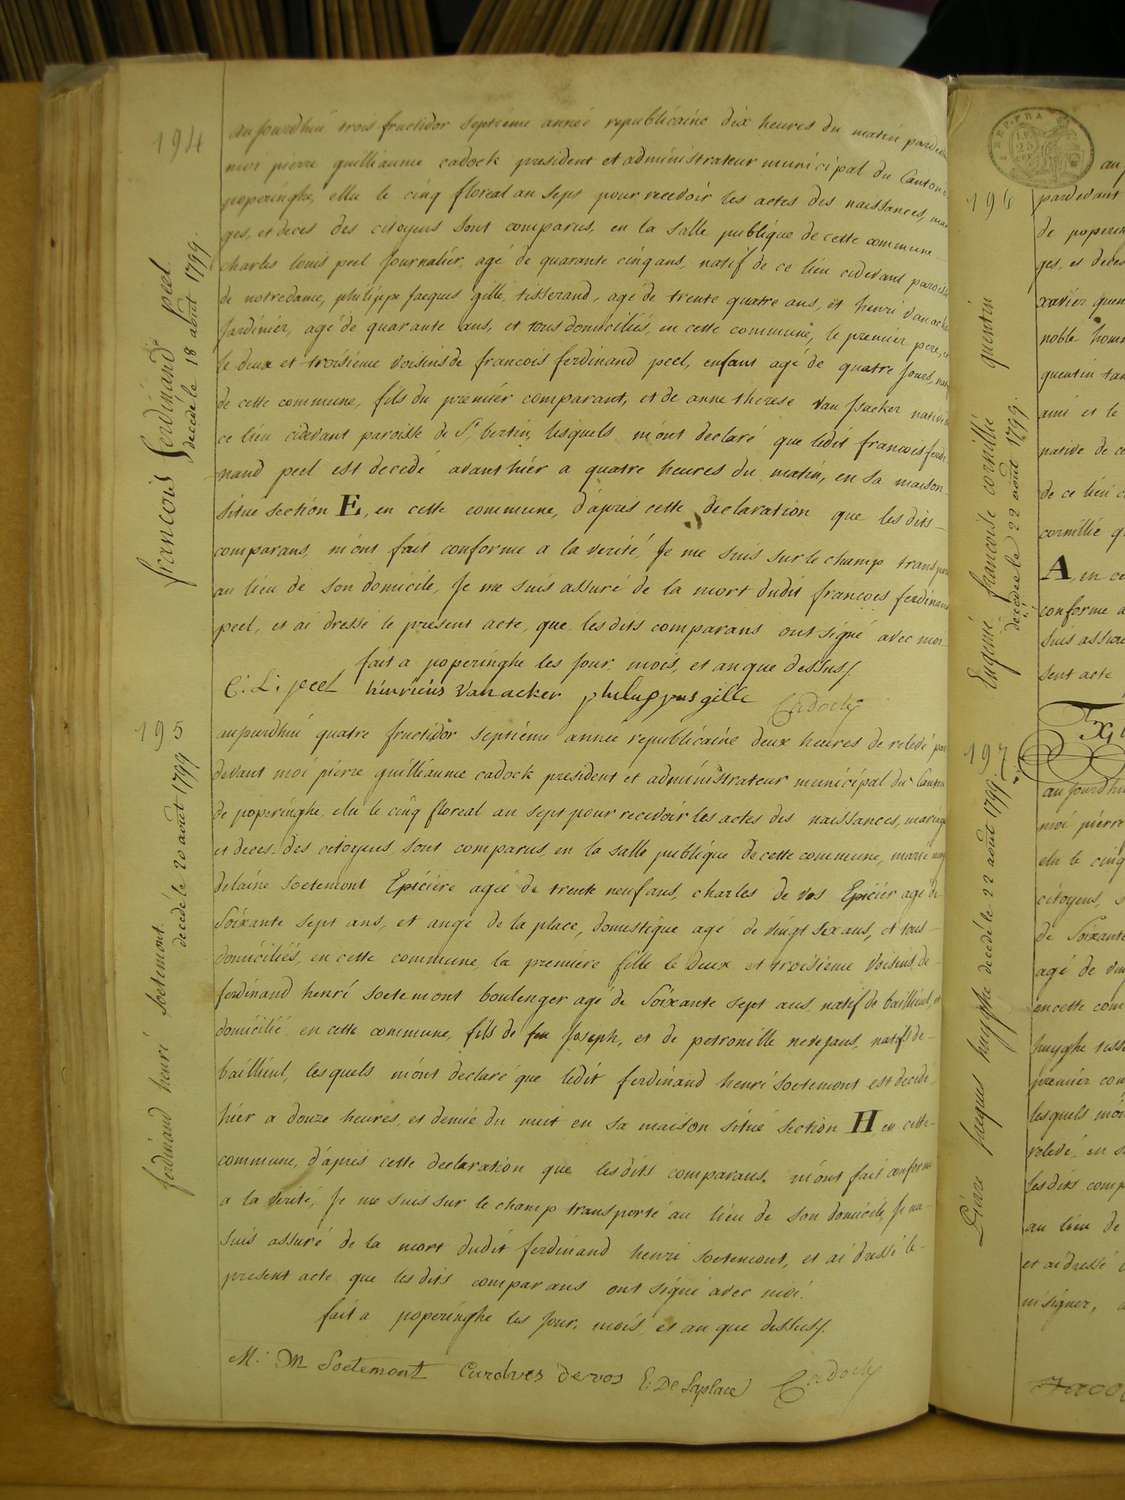 194
françois Ferdinand peel
decedé le 18 août 1799.
aujourdhui trois fructidor septieme année republicaine dix heures du matin pardevant
moi pierre guilliaume cadock president et administrateur municipal du Canton de
poperinghe, elu le cinq floreal an sept pour recevoir les actes des naissances, maria
ges, et deces des citoyens sont comparus, en la salle publique de cette commune
charles louis peel Journalier, agé de quarante cinq ans natif de ce lieu cidevant paroisse
de notredame, philippe jacques gille, tisserand, agé de trente quatre ans, et henri vanacker
Jardinier, agé de quarante ans, et tous domiciliés, en cette commune, le premier pere, et
le deux et troisieme voisins de francois ferdinand peel, enfant agé de quatre jours, natif
de cette commune, fils du premier comparant, et de anne therese van Isacker native de
ce lieu cidevant paroisse de St bertin, lesquels m'ont declaré que ledit francois ferdi
nand peel est decedé avanthier a quatre heures du matin, en sa maison
situé section E, en cette commune, d'apres cette declaration que lesdits
comparans, m'ont fait conforme a la verité, Je me suis sur le champ transporté
au lieu de son domicile, Je me suis assuré de la mort dudit françois ferdinand
peel, et ai dressé le present acte, que lesdits comparans ont signé avec moi
fait a poperinghe les jour, mois, et an que dessus.
C. L. peel hinrieus Van acker philuppus gille Cadock
195
ferdinand henri soetemont.
decedé le 20 août 1799
aujourdhui quatre fructidor septieme année republicaine deux heures de relevé par
devant moi pierre guilliaume cadock president et administrateur municipal du Canton
de poperinghe, elu le cinq floreal an sept pour recevoir les actes des naissances, mariages
et deces des citoyens, sont comparus, en la salle publique de cette commune, marie mag
delaine Soetemont Epicière agée de trente neuf ans, charles de vos Epicier agé de
Soixante sept ans, et ange de la place, domestique agé de vingt six ans, et tous
domiciliés, en cette commune, la premiere fille le deux et troisieme voisins de
ferdinand henri soetemont boulenger agé de Soixante sept ans, natif de baillieul, et
domicilié en cette commune, fils de feu Joseph, et de petronille nerejans, natifs de
baillieul, lesquels m'ont declaré que ledit ferdinand henri soetemont est decedé
hier a douze heures, et demie du nuit en sa maison situé section H en cette
commune, d'apres cette declaration que lesdits comparans, m'ont fait conforme
a la verité, Je me suis sur le champ transporté au lieu de son domicile, Je me
suis assuré de la mort dudit ferdinand henri soetemont, et ai dressé le
present acte que lesdits comparans ont signé avec moi.
fait a poperinghe les jour, mois, et an que dessus.
M. M Soetemont Carolus de vos E. De Laplace Cadock
196
Eugenie françoise cornillie quentin
decedée le 22 août 1799.
au
pardevant
de poperin
ges, et deces
xavier quen
noble homm
quentin tan
ami et le
native de ce
de ce lieu c
cornillie q
A, en ce
conforme a
suis assuré
sent acte
197
Pierre jacques huyghe decedé le 22 août 1799.
aujourdhu
moi pierre
elu le cinq
citoyens, s
de Soixante
agé de vin
en cette com
huyghe tiss
premier com
lesquels m'on
relevé, en s
lesdits comp
au lieu de
et ai dressé
ni signer,
Jaco